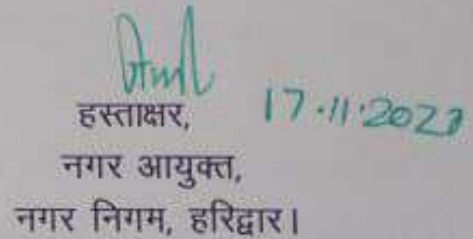 हस्ताक्षर, 17.11.2023
नगर आयुक्त,
नगर निगम, हरिद्वार।